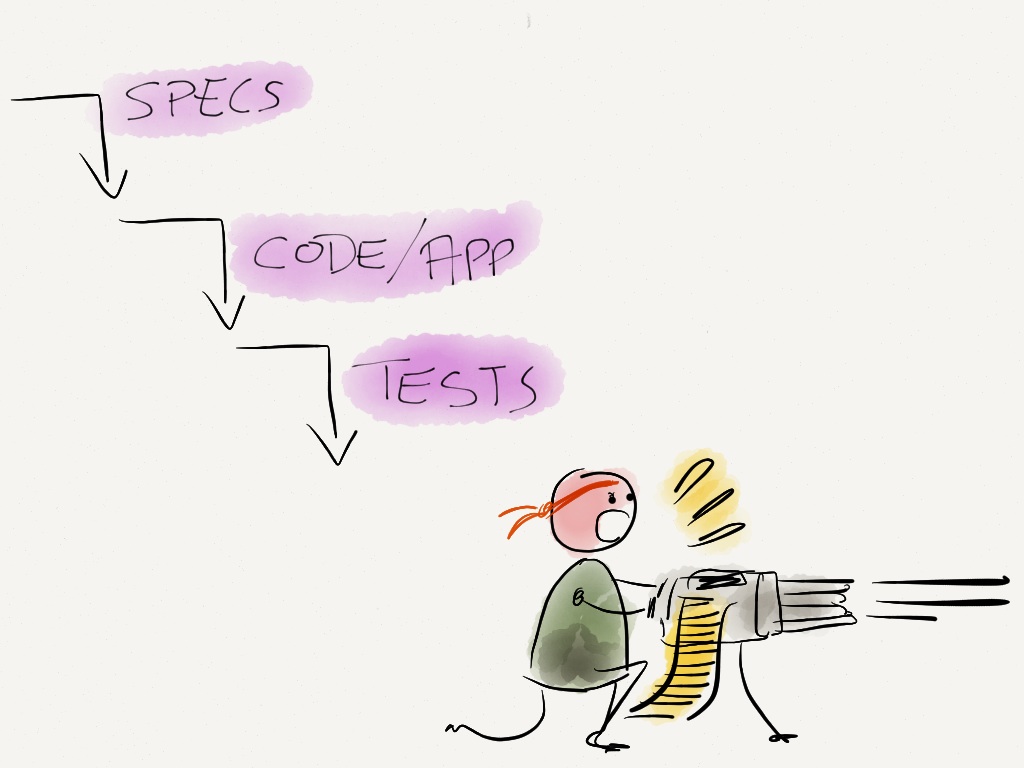 SPECS
CODE/APP
TESTS